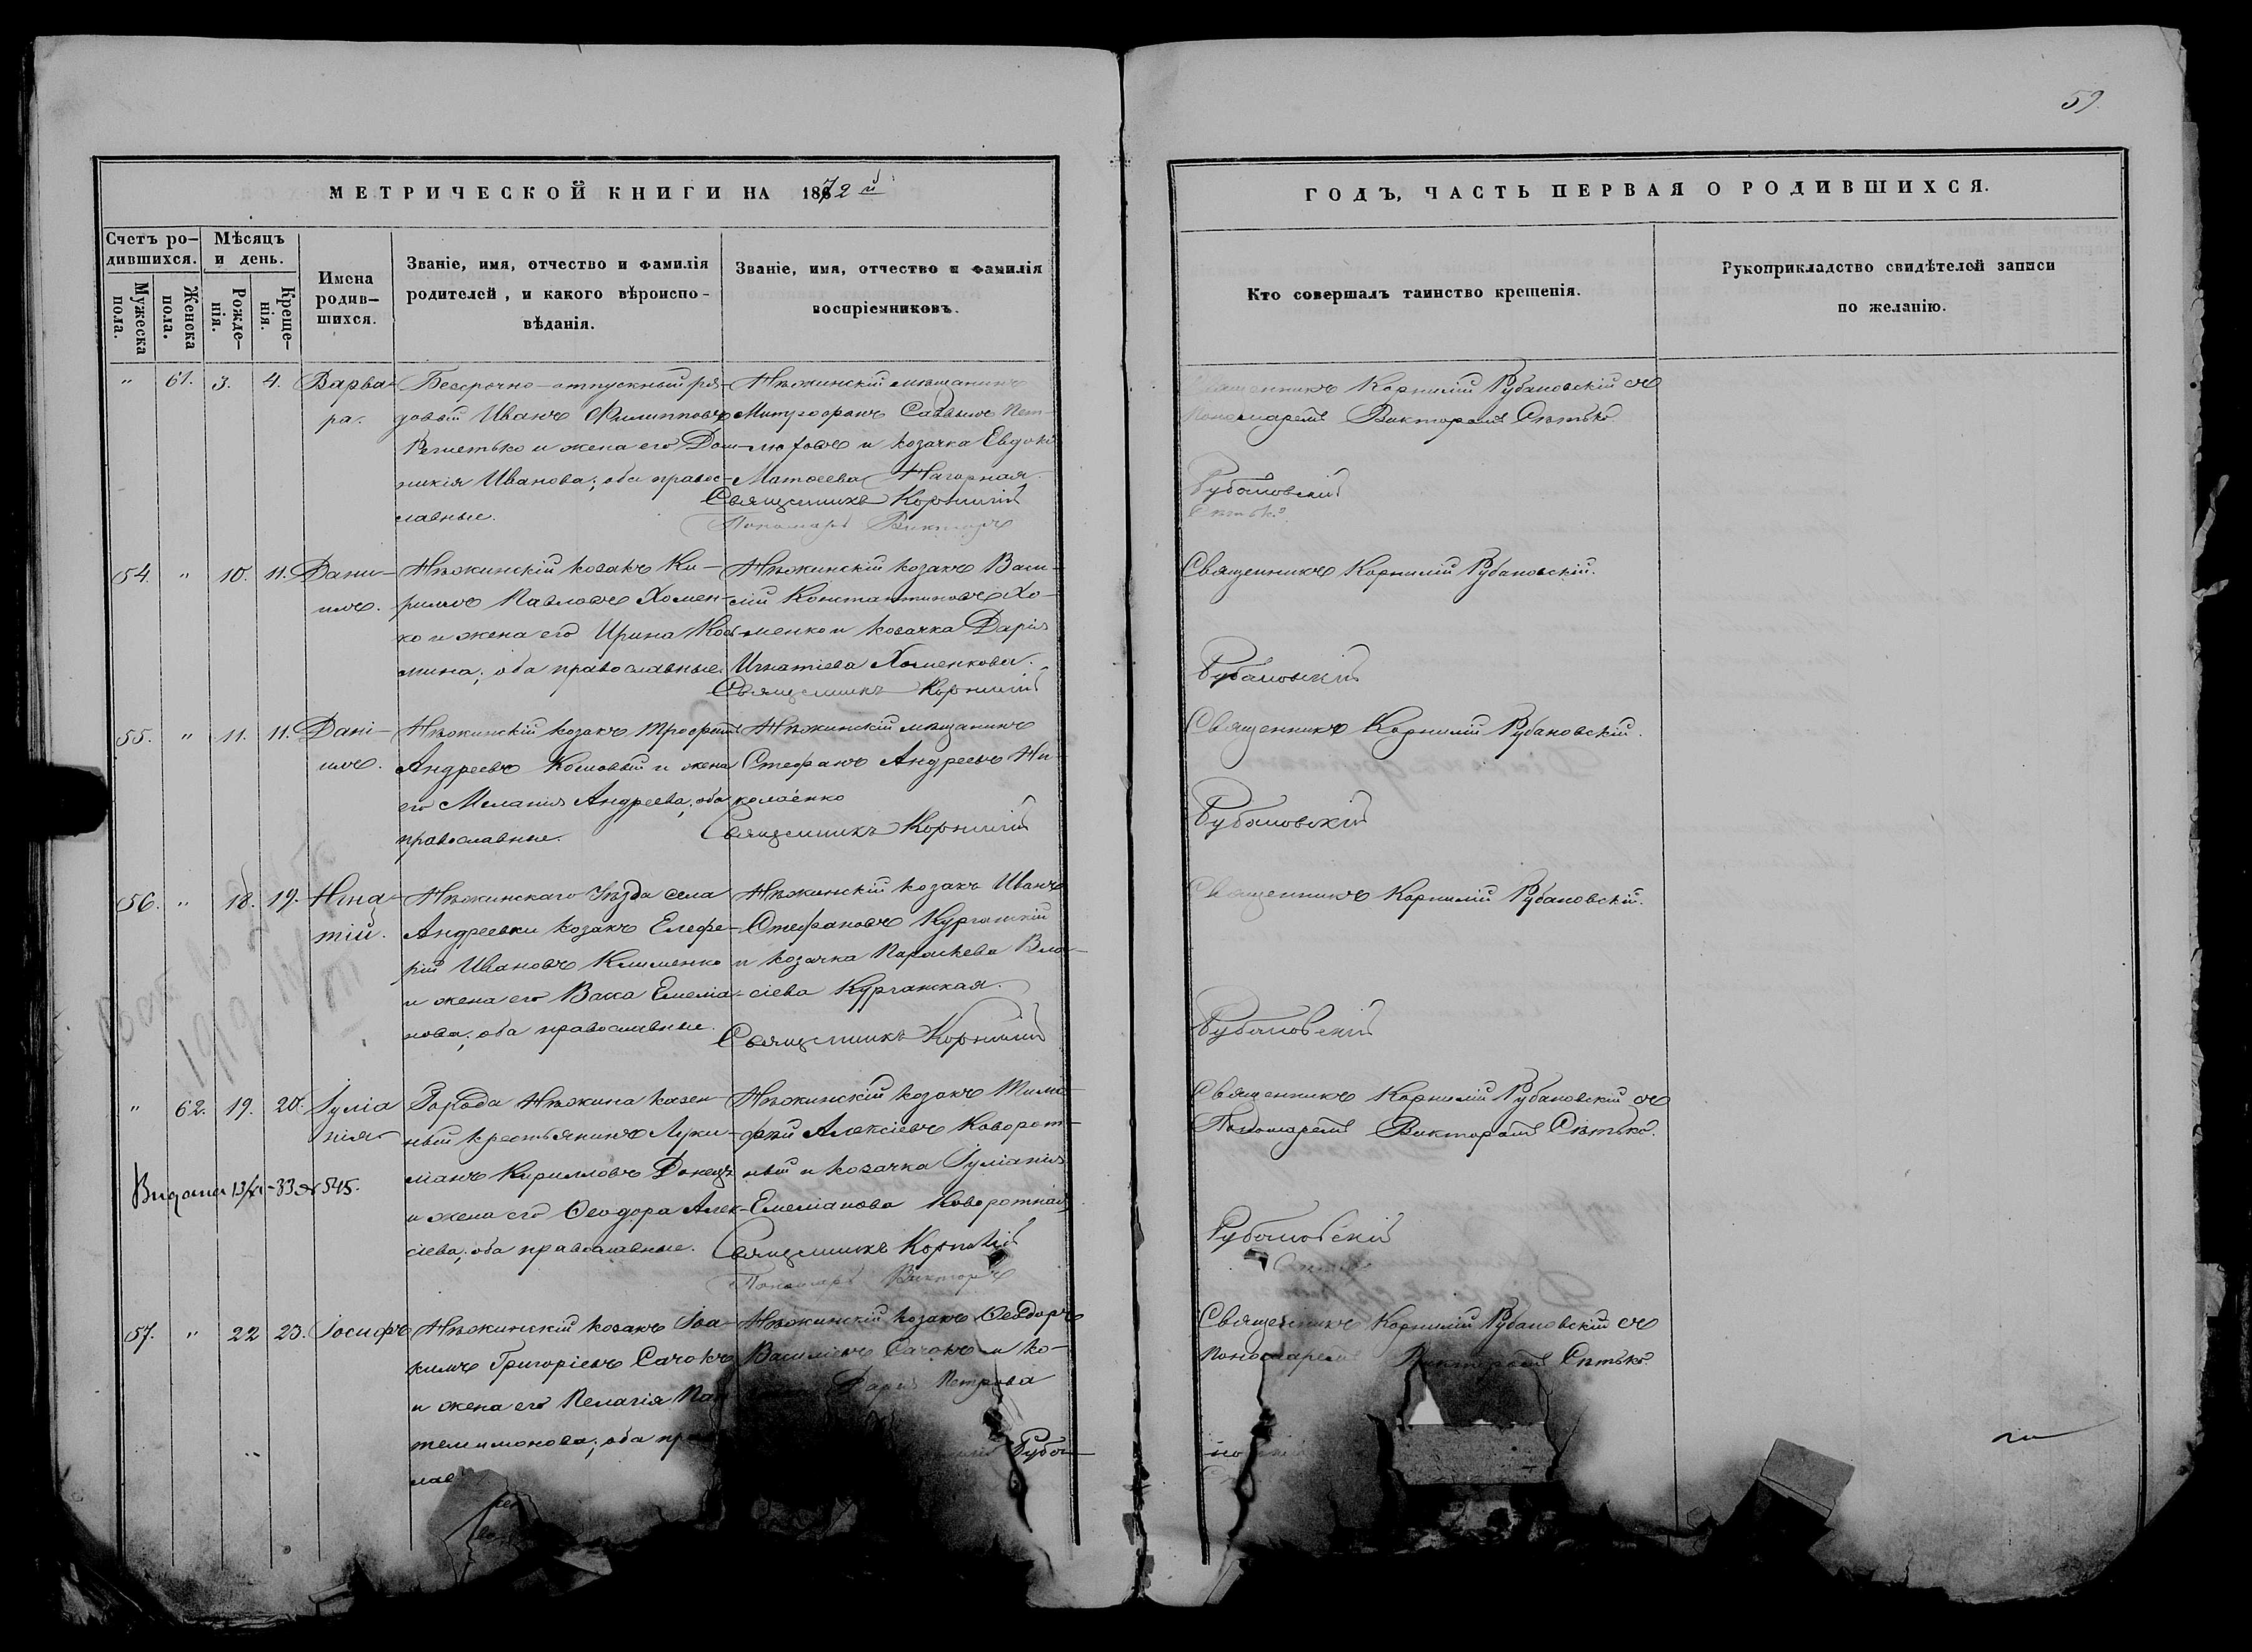 59.
МЕТРИЧЕСКОЙ КНИГИ НА 1872й
ГОДЪ, ЧАСТЬ ПЕРВАЯ О РОДИВШИХСЯ.
Счетъ ро-
дившихся.
Мужеска пола.
Женска пола.
Мѣсяцъ
и день.
Рожде-
нія.
Креще-
нія.
Имена
родив-
шихся.
Званіе, имя, отчество и фамилія
родителей, и какого вѣроиспо-
вѣданія.
Званіе, имя, отчество и фамилія
воспріемниковъ.
Кто совершалъ таинство крещенія.
Рукоприкладство свидѣтелей записи
по желанію.
" 61. 3. 4. Варва-
ра.
Безсрочно-отпускный ря-
довый Иванъ Филипповъ
и жена его Дом-
никія Иванова; оба правос-
лавные.
Нѣжинскій мѣщанинъ
Митрофанъ Саввичъ
и козачка Евдокі
Матѳеева Нагорная.
Священникъ Корнилій
Пономарь Викторъ
Священникъ Корнилій Рубановскій съ
Пономаремъ Викторомъ Сѣтько.
Рубановскій
Сѣтько
54. " 10. 11. Дани-
илъ.
Нѣжинскій козакъ Ки-
риллъ Павловъ Хомен-
ко и жена его Ирина Кос-
мина; оба православные.
Нѣжинскій козакъ Васи-
лій Константиновъ Хо-
менко и козачка Дарія
Игнатіева Хоменкова.
Священникъ Корнилій
Священникъ Корнилій Рубановскій.
Рубановскій
55. " 11. 11. Дані-
илъ.
Нѣжинскій козакъ Трофимъ
Андреевъ Кошовый и жена
его Меланія Андреева; оба
православные.
Нѣжинскій мѣщанинъ
Стефанъ Андреевъ Ни-
колаенко
Священникъ Корнилій
Священникъ Корнилій Рубановскій.
Рубановскій
56. " 18. 19. Игна-
тій.
Нѣжинскаго Уѣзда села
Андреевки козакъ Елефе-
рій Ивановъ Клименко
и жена его Васса Емеліа-
нова; оба православные.
Нѣжинскій козакъ Иванъ
Стефановъ Курганскій
и козачка Параскева Вла-
сіева Курганская.
Священникъ Корнилій
Священникъ Корнилій Рубановскій.
Рубановскій
" 62. 19. 20. Іуліа
нія
Города Нѣжина казен-
ный крестьянинъ Луки-
ліанъ Кирилловъ Донецъ
и жена его Ѳеодора Алек-
сіева; оба православные.
Нѣжинскій козакъ Тимо-
фей Алексіевъ Коворот-
ный и козачка Іуліанія
Емеліанова Коворотная
Священникъ Корнилій
Пономарь Викторъ
Священникъ Корнилій Рубановскій съ
Пономаремъ Викторомъ Сѣтько.
Рубановскій
Сѣтько
-33 № 545.
57. " 22 23. Іосифъ
Нѣжинскій козакъ Іоа-
кимъ Григоріевъ Сачокъ
и жена его Пелагія Пан
телимонова; оба прав
лав
Нѣжинскій козакъ Ѳеодоръ
Василіевъ Сачокъ и ко-
Дарія Петрова
Руба-
Священникъ Корнилій Рубановскій съ
Пономаремъ Викторомъ Сѣтько.